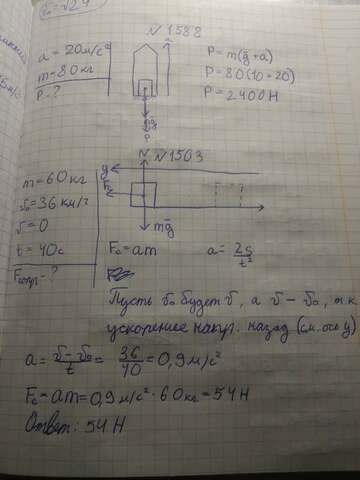 v₀=√2g
N 1588
a = 20м/с²
m=80кг
P-?
P = m(g+a)
P = 80(10+20)
P = 2400Н
mg
P
N N1503
m=60кг
v₀=36км/г
v=0
t=40с
Fсопр-?
y
Fc
mg
Fc=am
a= 2s/t²
Пусть v₀ будет v, а v - v₀, т.к.
ускорение напр. назад (см. ось y)
a = v-v₀/t = 36/40 = 0,9м/с²
Fc=am=0,9м/с²·60кг=54Н
Ответ: 54Н